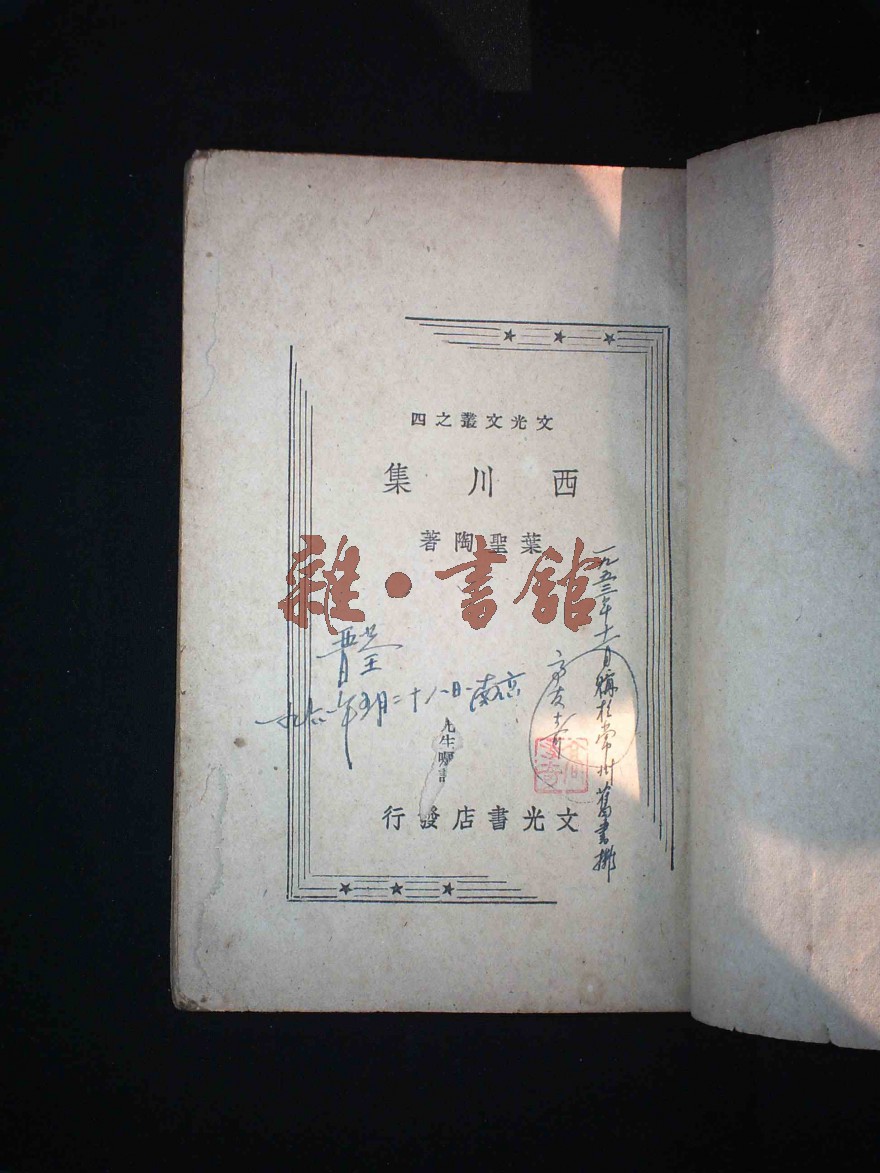 文光文叢之四
西川集
葉聖陶著
雜·書館
一九五三年十一月購於常州舊書攤
一九六一年五月二十八日·南京
文光書店發行